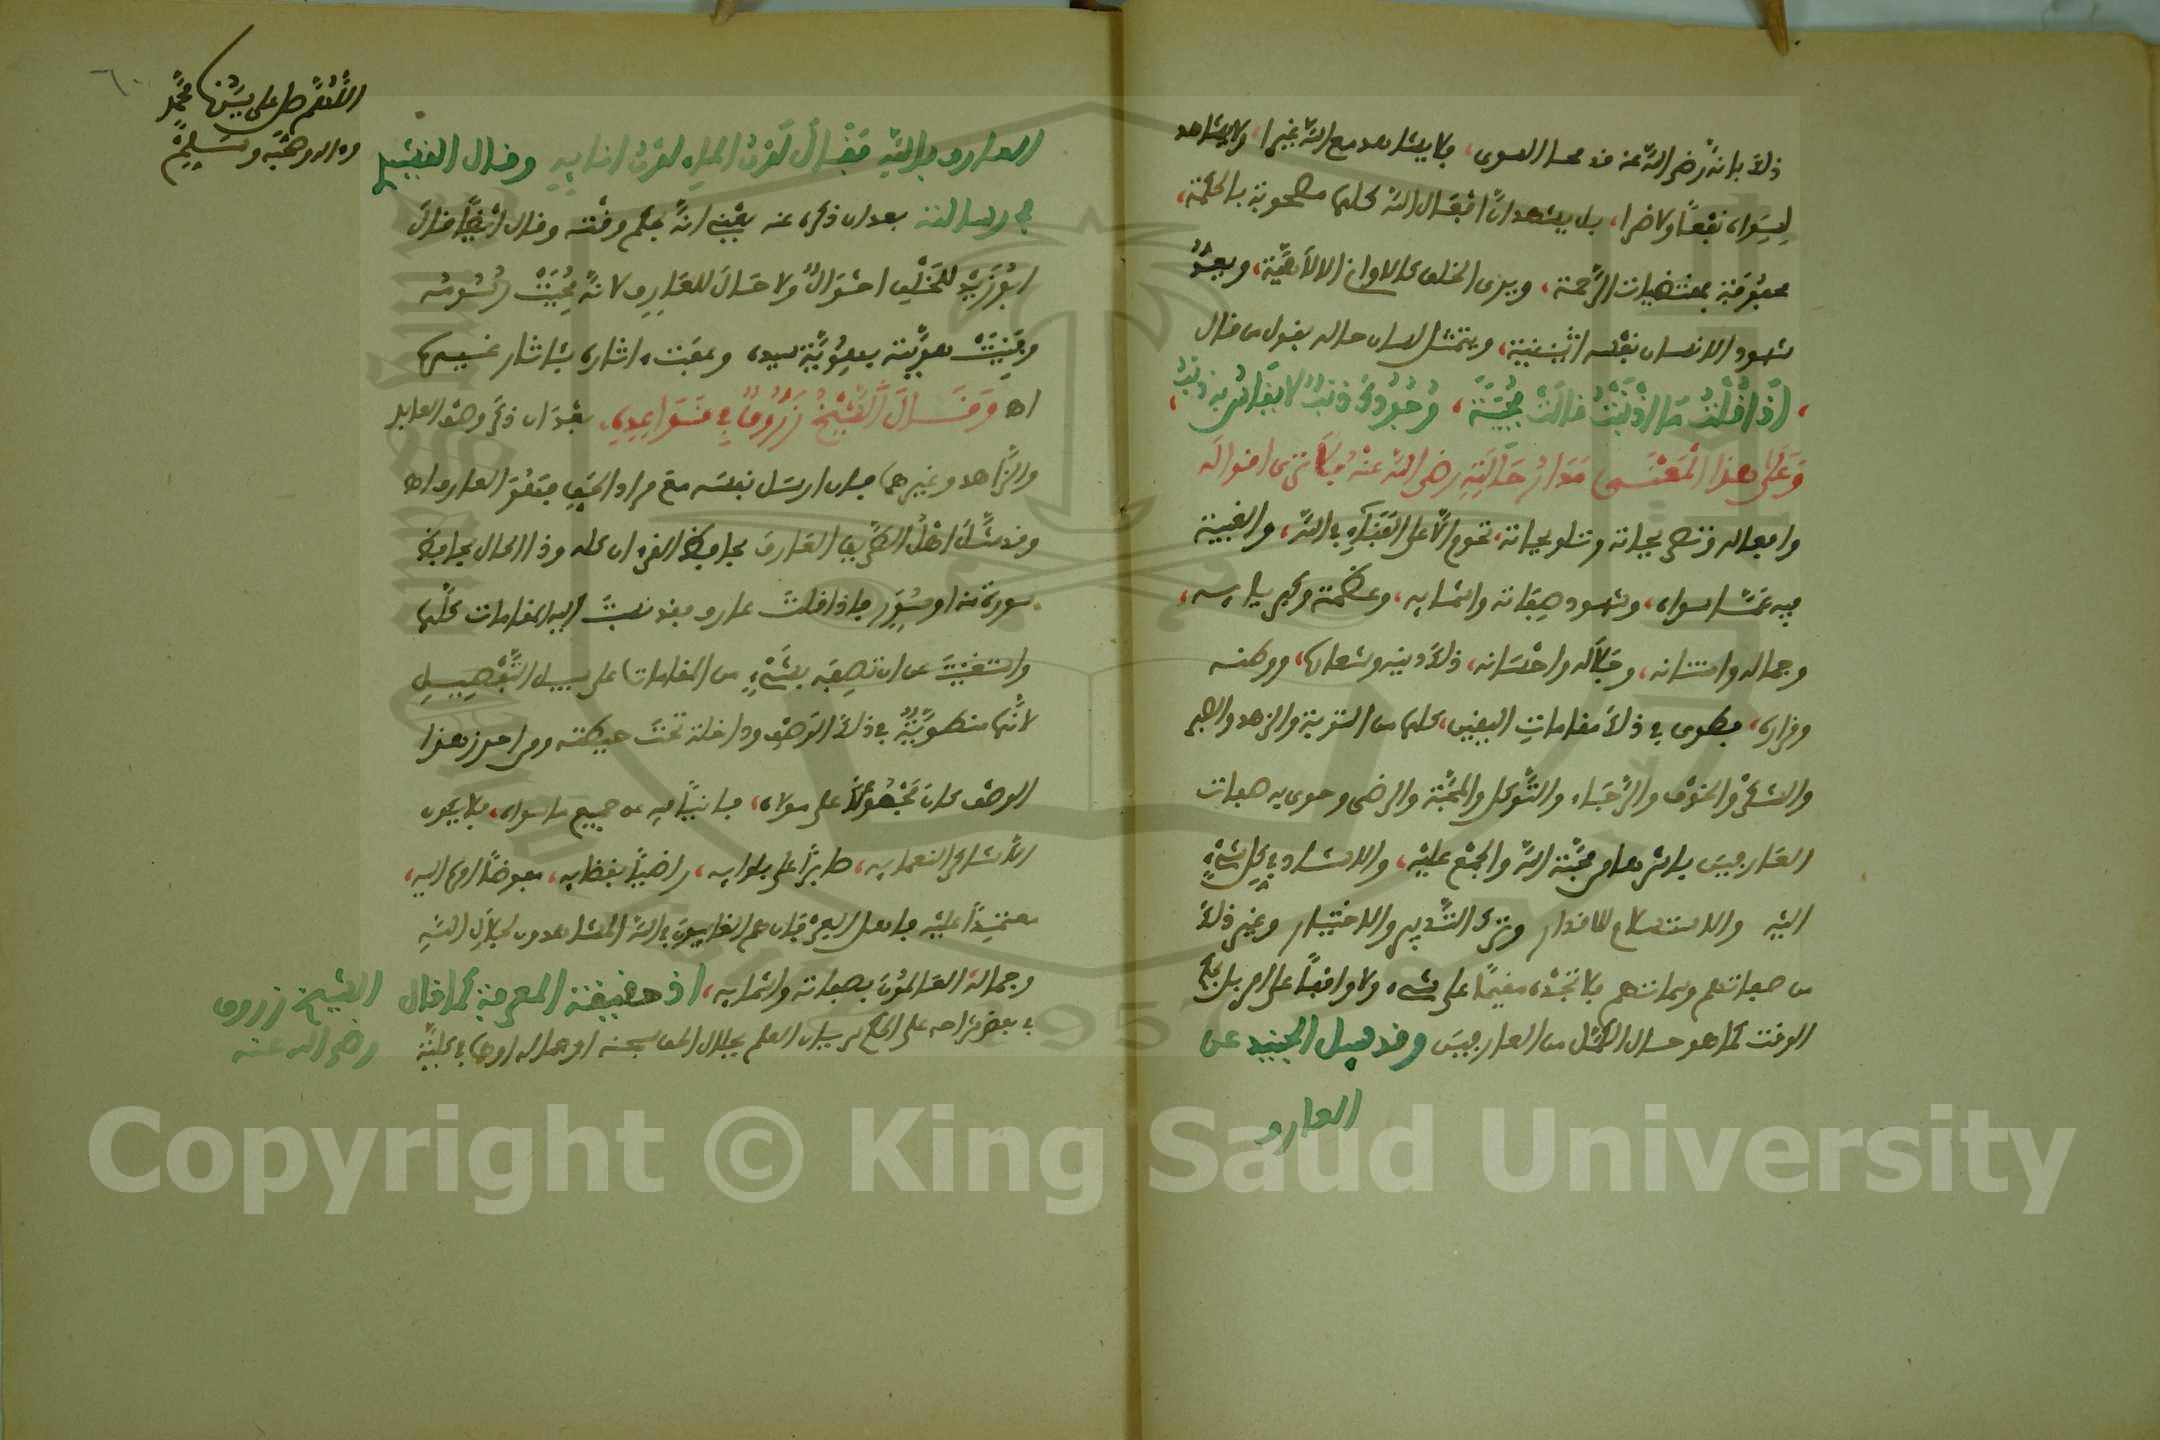 ذلك بانه رضي الله عنه قد محا السوى، فلا يشاهد مع الله غيرا، ولا يشاهد
لسواه نفعا ولا ضرا، بل يشهد ان افعال الله كلها مصحوبة بالحكمة،
محفوفة بمقتضيات الرحمة، ويرى الخلق كالاواني الالاهية، ويعد
شهود الانسان نفسه اثنينية، ويتمثل لسان حاله بقول من قال
، اذا قلت ما اذنبت قالت مجيبة، وجودك ذنب لا يقاس به ذنب،
وعلى هذا المعنى مدار حالته رضي الله عنه فلا ترى اقواله
وافعاله وتصرفاته وتقلباته تحوم الا على الفناء في الله، والغيبة
فيه عما سواه، وشهود صفاته واسمايه، وعظمته وكبريايه،
وجماله وامتنانه، وجلاله واحسانه، ذلك دينه وشعاره، ووطنه
وقراره، فطوى في ذلك مقامات اليقين، كلها من التوبة والزهد والصبر
والشكر والخوف والرجاء والتوكل والمحبة والرضى وحوى به صفات
العارفين باسرها من محبة الله والجمع عليه، والاستناد في كل شيء
اليه والاستسلام للاقدار وترك التدبير والاختيار وغير ذلك
من صفاتهم وسماتهم فلا تجده مقيما على شيء، ولا واقفا على امر بل بحكم
الوقت كما هو حال الكمل من العارفين وقد سيل الجنيد عن
العارف
اللهم صل على سيدنا محمد
واله وصحبه وسلم
٦٠
العارف بالله فقال لون الماء لون انايه وقال القشيري
في رسالته بعد ان ذكره عنه يعني انه بحكم وقته وقال ايضا قال
ابو يزيد للخلق احوال ولا حال للعارف لانه محيت رسومه
وفنيت هويته بهوية غيره وغيبت اثاره باثار غيره
اه وقال الشيخ زروق في قواعده، بعد ان ذكر وصف العابد
والزاهد وغيرهما فان ارسل نفسه مع مراد الحق فهو العارف اه
وقد مثل اهل الطريق العارف بحافظ القرءان كله وذا الحال بحافظ
سورة منه او سور فاذا قلت عارف فقد نسبت اليه المقامات كلها
واستغنيت عن ان تصفه بشيء من المقامات على سبيل التفصيل
لانها منطوية في ذلك الوصف وداخلة تحت حيطته ومن احرز هذا
الوصف كان مجموعا على مولاه، فانيا فيه عن جميع ما سواه، فلا يكون
الا شاكرا لنعمايه، صابرا على بلوايه، راضيا بقضايه، مفوضا امره اليه،
معتمدا عليه فاهل المعرفة هم الغايبون في الله المشاهدون لجلال الله
وجماله العالمون بصفاته واسمايه، اذ حقيقة المعرفة كما قال الشيخ زروق
في بعض شراحه على الحكم سريان العلم بجلال الحق سبحنه او جماله اوهما في كلية
رضي الله عنه
Copyright © King Saud University